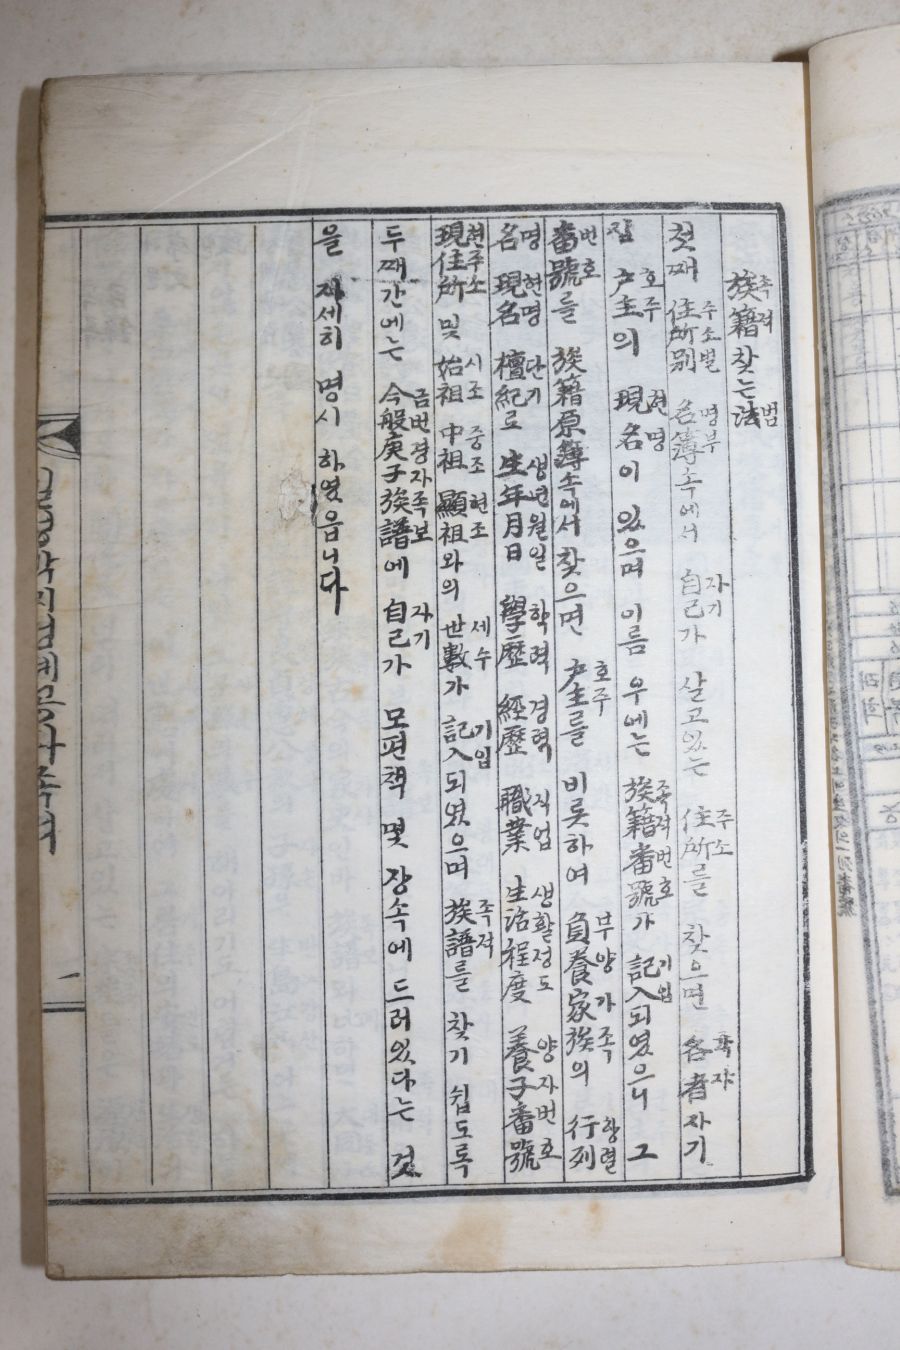 族籍찾는法
족적 범
첫째 住所別 名簿속에서 自己가 살고있는 住所를 찾으면 各者자기
주소별 명부 자기 주소
집 戶主의 現名이 있으며 이름 우에는 族籍番號가 記入되였으니 그
호주 현명 족적번호 기입
番號를 族籍原簿속에서 찾으면 戶主를 비롯하여 負養家族의 行列
번호 호주 부양가족 항렬
名 現名 檀紀로 生年月日 學歷 經歷 職業 生活程度 養子番號
명 현명 단기 생년월일 학력 경력 직업 생활정도 양자번호
現住所 및 始祖 中祖 顯祖와의 世數가 記入되였으며 族譜를 찾기 쉽도록
현주소 시조 중조 현조 세수 기입 족적
두째간에는 今般庚子族譜에 自己가 모편책 몇 장속에 드러있다는 것
금번경자족보 자기
을 자세히 명시 하였읍니다
一